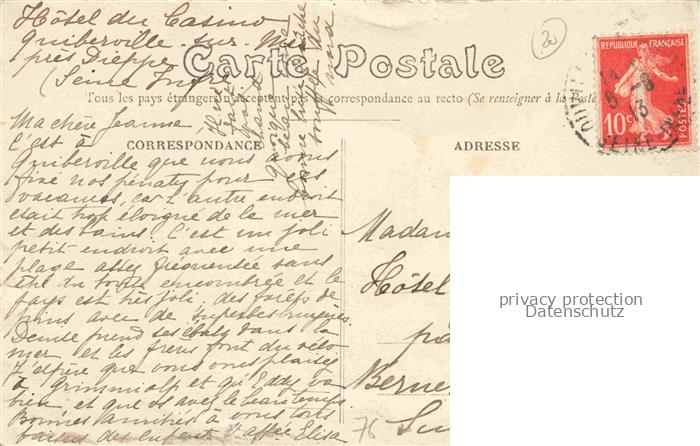 Hôtel du Casino
Quiberville-sur-Mer
près Dieppe
(Seine Infre)
Carte Postale
Tous les pays étrangers n'acceptent pas la correspondance au recto (Se renseigner à la Poste)
CORRESPONDANCE
ADRESSE
REPUBLIQUE FRANÇAISE
10c
POSTES
20
Ma chère Jeanne
C'est à
Quiberville que nous avons
fixé nos pénates pour les
vacances, car l'autre endroit
était trop éloigné de la mer
et des bains. C'est un joli
petit endroit avec une
plage assez fréquentée sans
être du tout encombrée et le
pays est très joli, des forêts de
pins avec de superbes
Denise prend ses ébats dans la
mer et les frères font du vélo
J'espère que vous vous plaisez
à Grimmialp et qu'Eddy va
bien et que vs avez le beau temps
Bonnes amitiés à vous tous
des enfants. L'affée Elisa
Madam
Hôtel
Berne
Sui
76
privacy protection
Datenschutz